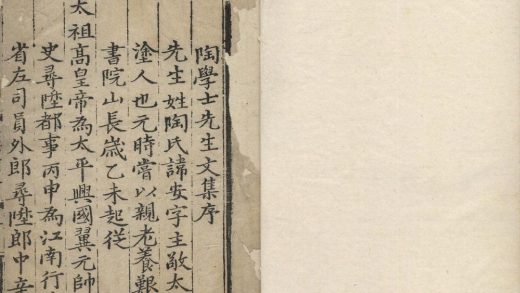 陶學士先生文集序
先生姓陶氏諱安字主敬太
塗人也元時嘗以親老養艱
書院山長歲乙未起從
太祖髙皇帝為太平興國翼元帥
史尋陞都事丙申為江南行
省左司員外郎尋陞郎中辛